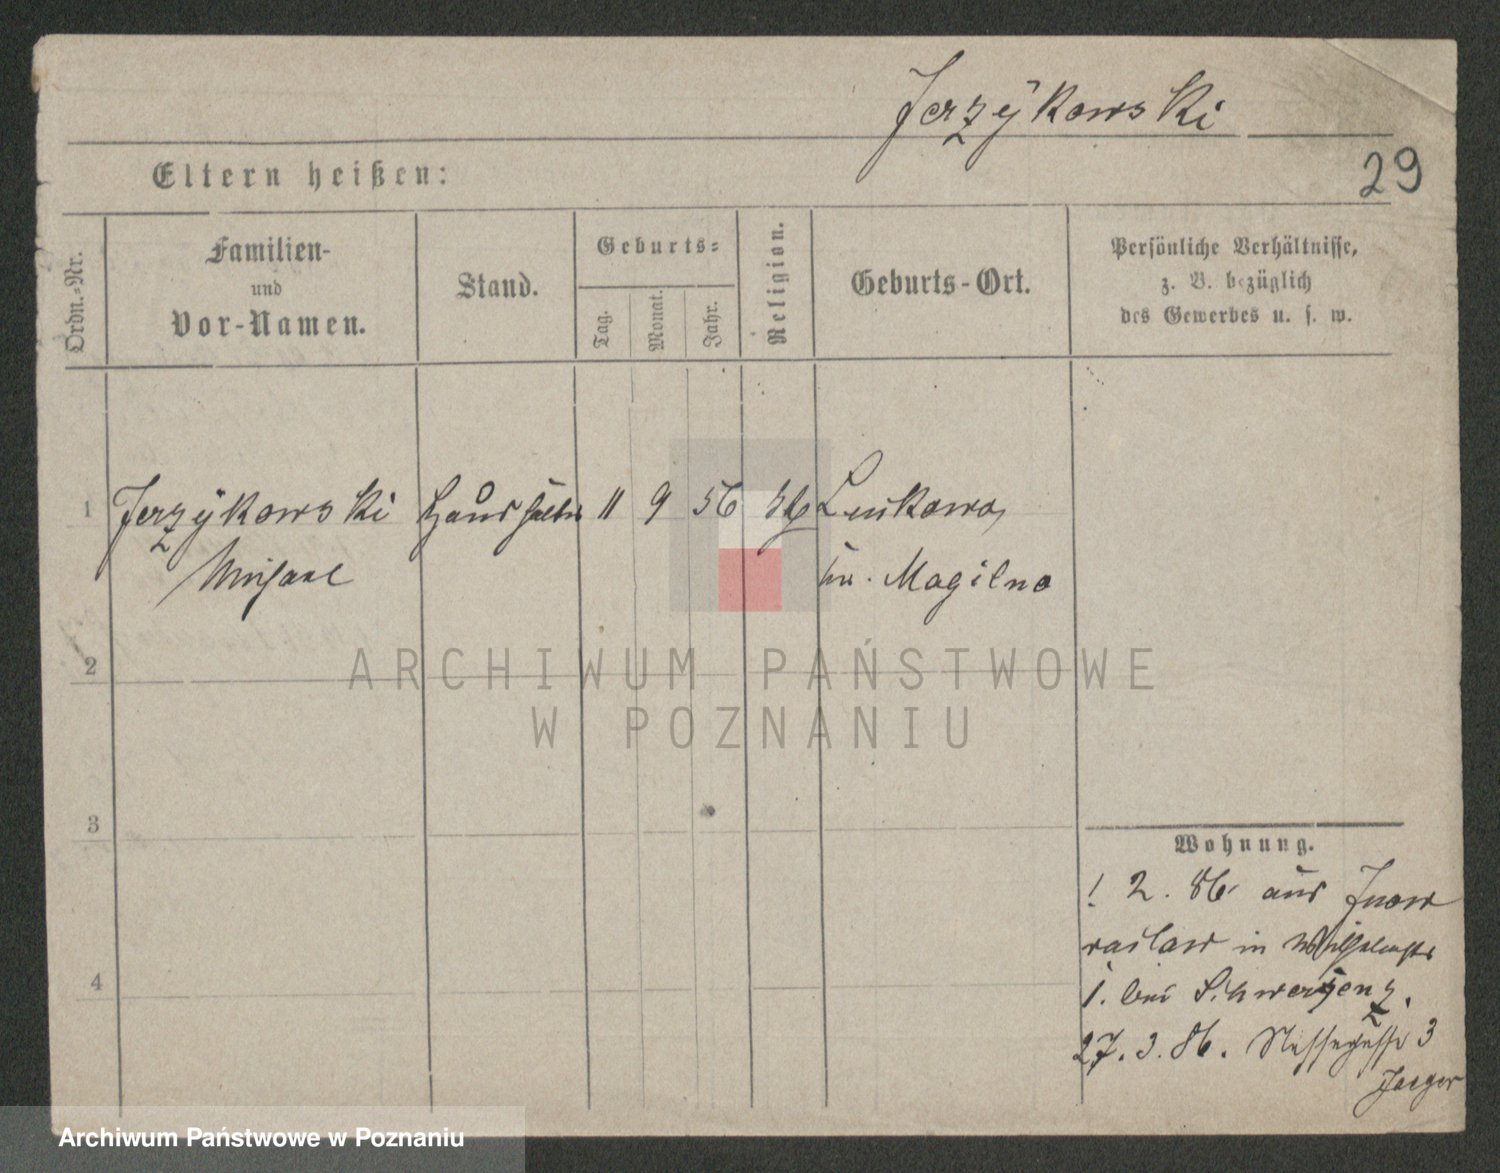 Jerzÿkowski
29
Eltern heißen:
Ordn.-Nr.
Familien-
und
Vor-Namen.
Stand.
Geburts-
Tag.
Monat.
Jahr.
Religion.
Geburts-Ort.
Persönliche Verhältnisse,
z. B. bezüglich
des Gewerbes u. s. w.
1 Jerzÿkowski Haushälter 11 9 56 Lukowo,
Michael Kr. Mogilno
ARCHIWUM PAŃSTWOWE
W POZNANIU
2
3
4
Wohnung.
1 2. 86 aus Inow
razlaw in
1. bei Schwersenz.
27. 3. 86. 3
Jaeger
Archiwum Państwowe w Poznaniu